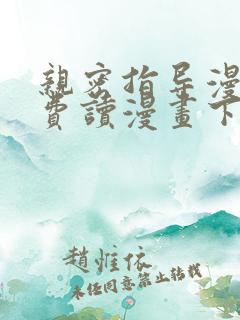 親密指导漫
費讀漫畫下
趙惟依
未任同意禁止转载